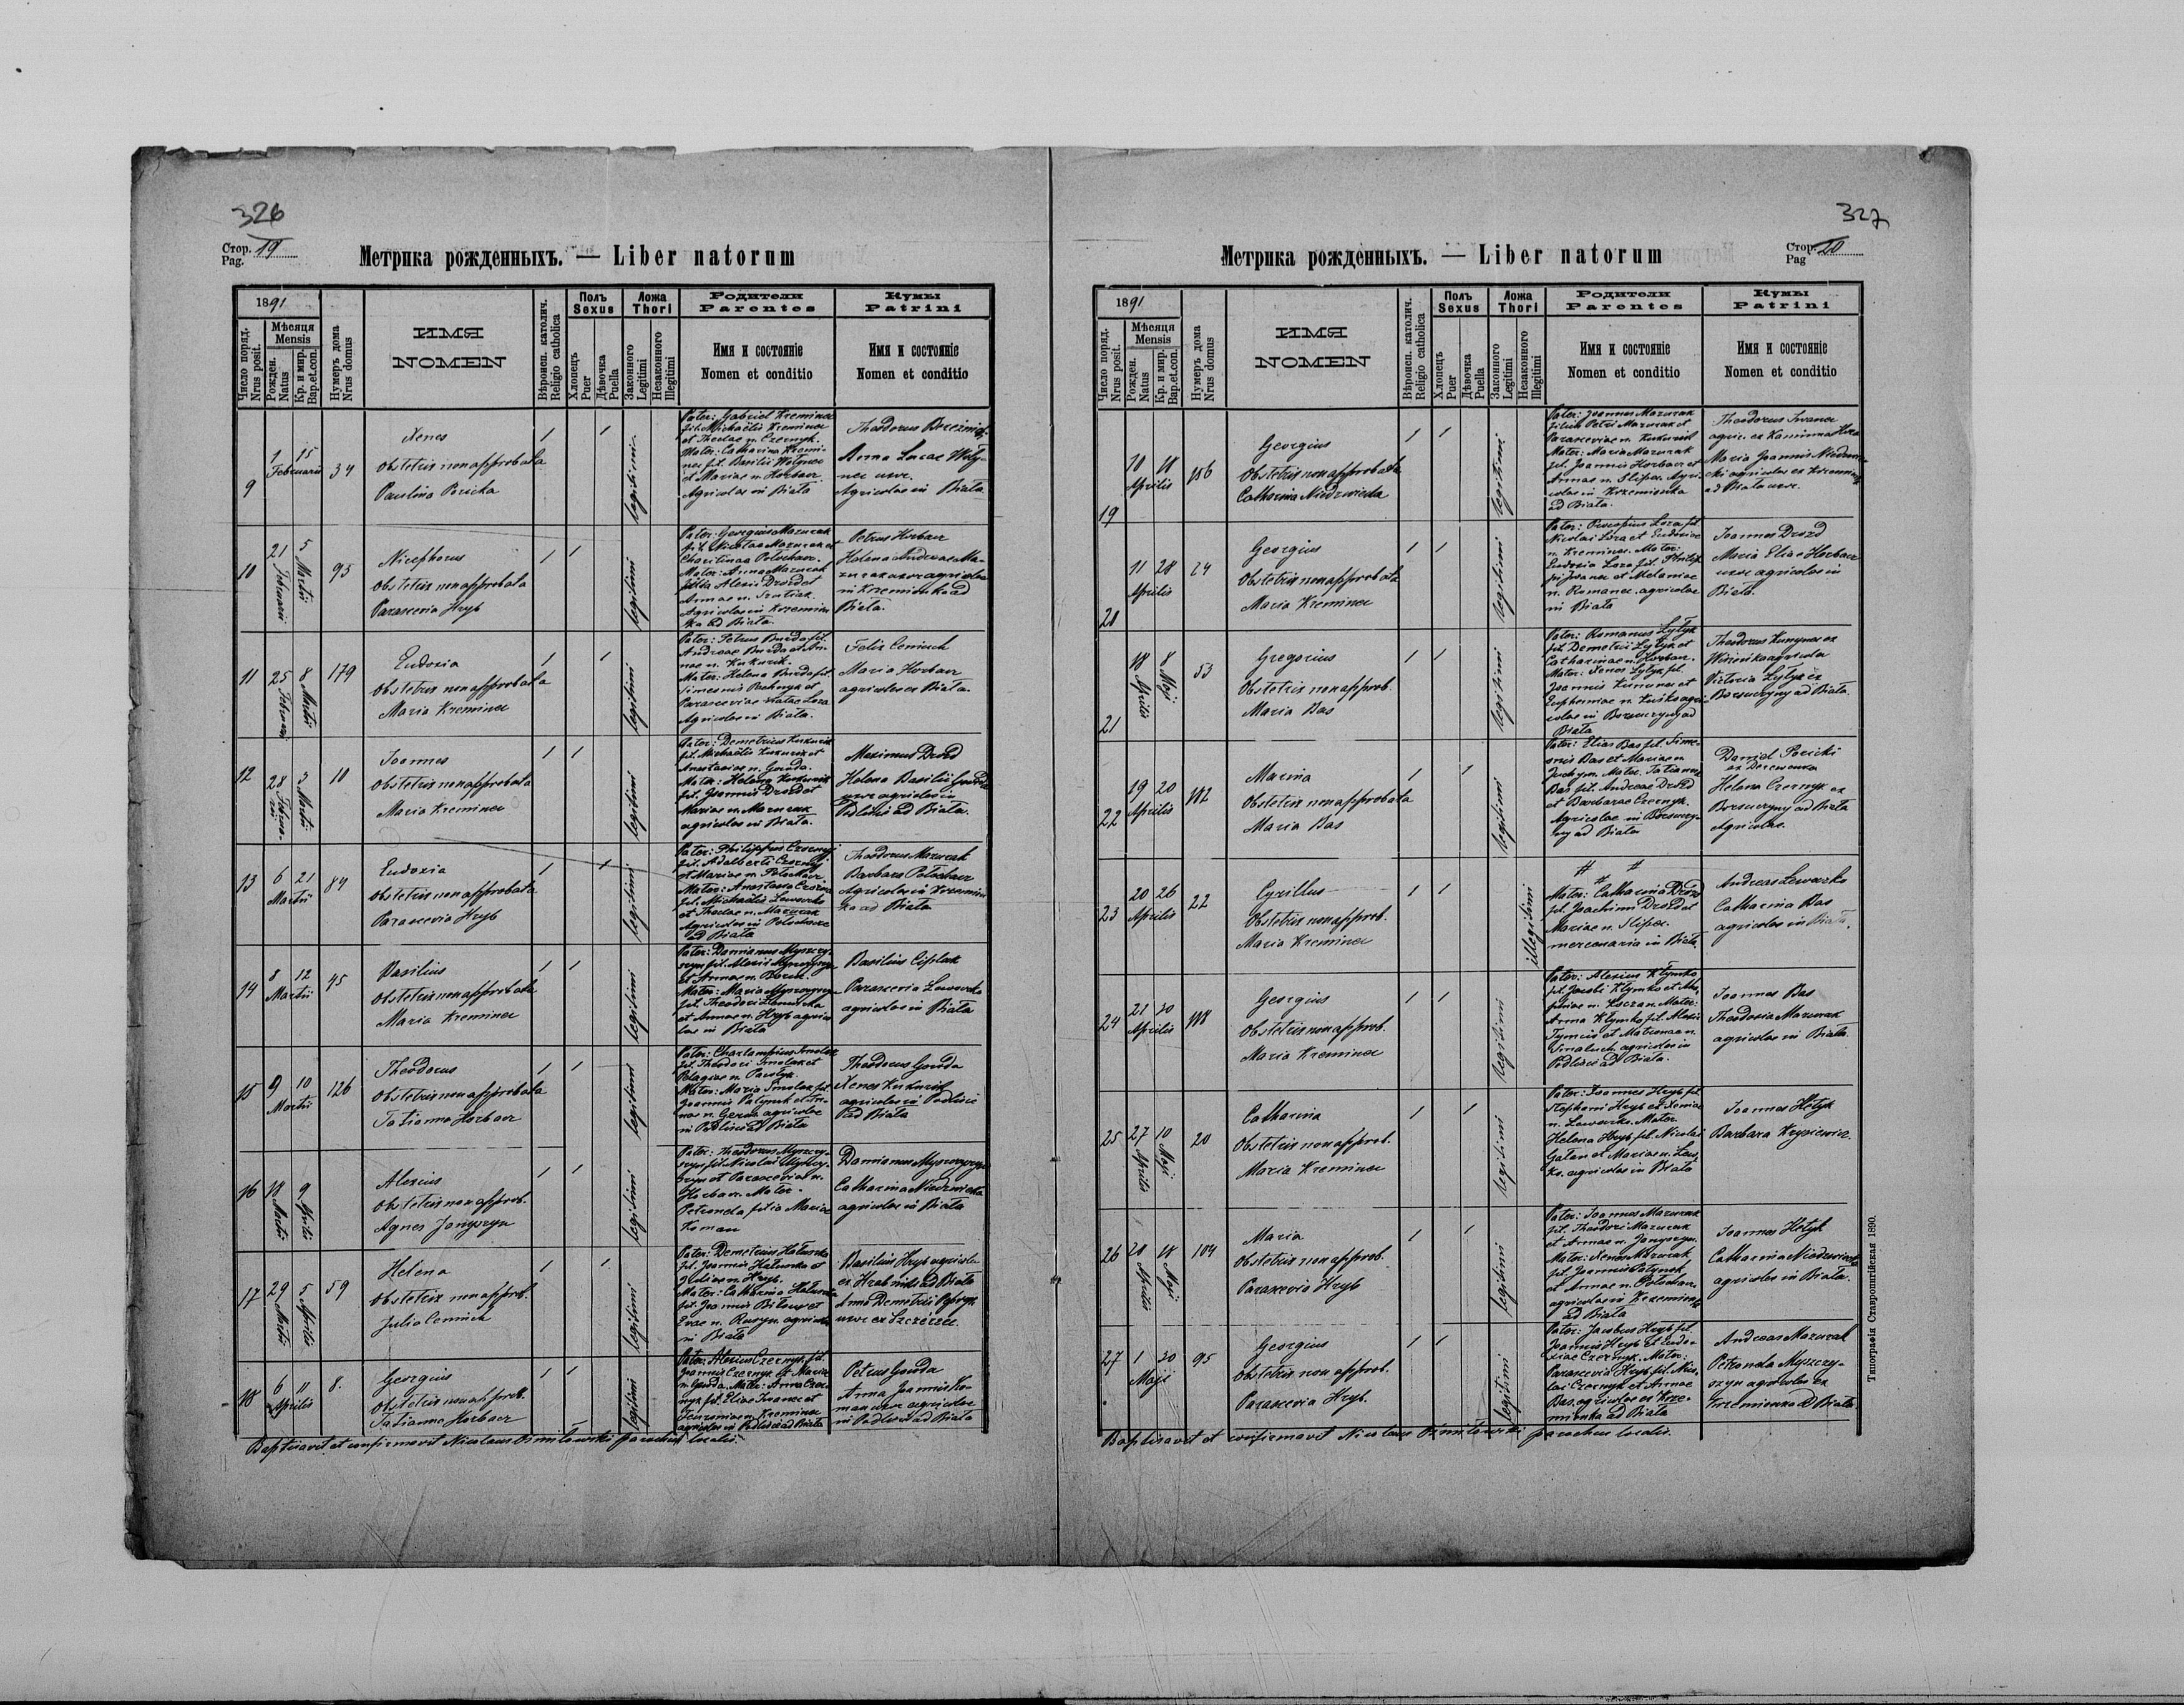 326
Стор. 19
Pag.
Метрика рожденныхъ. — Liber natorum
1891
Число поряд.
Nrus posit.
Мѣсяця
Mensis
Рожден.
Natus
Кр. и мир.
Bap.et.con.
Нумеръ дома
Nrus domus
ИМЯ
NOMEN
Вѣроисп. католич.
Religio catholica
Полъ
Sexus
Хлопецъ
Puer
Дѣвочка
Puella
Ложа
Thori
Законного
Legitimi
Незаконного
Illegitimi
Родители
Parentes
Имя и состояніе
Nomen et conditio
Кумы
Patrini
Имя и состояніе
Nomen et conditio
9
1 15
Februarii
34
Xenes
obstetrix non approbata
Paulina
1
1
legitimi
Pater: Gabriel Kreminer
fil. Michaëlis Kreminer
et Theclae n. Czernyk.
Mater: Catharina Kremi-
ner fil. Basilii
et Mariae n. Horbacz
Agricolae in Biała
Theodorus
Anna Lucae
uxor.
Agricolae in Biała
10
21 5
Februarii Martii
95
Nicephorus
obstetrix non approbata
Parascevia Hryb
1
1
legitimi
Pater: Georgius Mazurak
fil. Nicolae Mazurak et
Mater: Anna Mazurak
filia Alexii Drozd et
Annae n.
Agricolae in Krzemien
ka ad Biała
Petrus Horbacz
Helena Andreae Ma-
zurak uxor agricolae
in Krzemienka ad
Biała.
11
25 8
Februarii Martii
179
Eudoxia
obstetrix non approbata
Maria Kreminer
1
1
legitimi
Pater: Petrus Burda fil.
Andreae Burda et An-
nae n. Kukurik.
Mater: Helena Burda fil.
Simeonis
Parasceviae natae Loza
Agricolae in Biała.
Felix Ceniuch
Maria Horbacz
agricolae ex Biała.
12
28 3
Februa-
rii Martii
10
Joannes
obstetrix non approbata
Maria Kreminer
1
1
legitimi
Pater: Demetrius Kukurik
fil. Michaëlis Kukurik et
Anastasiae n. Gouda.
Mater: Helena Kukurik
fil. Joannis Drozd et
Mariae n. Mazurak
agricolae in Biała.
Maximus Drozd
Helena Basilii Gouda
uxor agricolae in
Podlisie ad Biała.
13
6 21
Martii
84
Eudoxia
obstetrix non approbata
Parascevia Hryb
1
1
legitimi
Pater: Philippus Czornyj
fil. Adalberti Czornyj
et Mariae n.
Mater: Anastasia Czorna
fil. Michaëlis Lewuszko
et Theclae n. Mazurak
Agricolae in
ad Biała
Theodorus Mazurak
Barbara
Agricolae in Krzemien
ka ad Biała
14
8 12
Martii
45
Basilius
obstetrix non approbata
Maria Kreminer
1
1
legitimi
Pater: Damianus Myszczy-
szyn fil. Alexii Myszczyszyn
et Annae n.
Mater: Maria Myszczyszyn
fil. Theodori
et Annae n. Hryb agrico
lae in Biała
Basilius
Parascevia
agricolae in Biała
15
9 10
Martii
126
Theodorus
obstetrix non approbata
Tatianna Horbacz
1
1
legitimi
Pater: Charlampius Smolak
fil. Theodori Smolak et
Pelagiae n.
Mater: Maria Smolak fil.
Joannis Patynok et An-
nae n. agricolae
in Podlisie ad Biała
Theodorus Gouda
Xenes Kukurik
agricolae in Podlisie
ad Biała
16
18 9
Martii Aprilis
Alexius
obstetrix non approb.
Agnes Janyszyn
1
1
legitimi
Pater: Theodorus Myszczy-
szyn fil. Nicolai Myszczy-
szyn et Parasceviae n.
Horbacz. Mater:
Petronela filia Mariae
Roman
Damianus Myszczyszyn
Catharina Niedzwiecka
agricolae in Biała
17
29 5
Martii Aprilis
59
Helena
obstetrix non approb.
Julia Ceniuch
1
1
legitimi
Pater: Demetrius Hałuszka
fil. Joannis Hałuszka et
Juliae n. Hryb.
Mater: Catharina Hałuszka
fil. Joannis et
Evae n. Rusyn. agricolae
in Biała
Basilius Hryb agricola
ex ad Biała
Anna Demetrii
uxor ex Szczerzec.
18
6 11
Aprilis
8.
Georgius
obstetrix non approb.
Tatianna Horbacz
1
1
legitimi
Pater: Alexius Czernyk fil.
Joannis Czernyk et Mariae
n. Gouda. Mater: Anna Czer-
nyk fil. Eliae Iwanec et
n. Kreminer
agricolae in Podlisie ad Biała
Petrus Gouda
Anna Joannis Ro-
man uxor agricolae
in Podlisie ad Biała
Baptisavit et confirmavit Nicolaus parochus localis.
327
Стор. 20
Pag
Метрика рожденныхъ. — Liber natorum
1891
Число поряд.
Nrus posit.
Мѣсяця
Mensis
Рожден.
Natus
Кр. и мир.
Bap.et.con.
Нумеръ дома
Nrus domus
ИМЯ
NOMEN
Вѣроисп. католич.
Religio catholica
Полъ
Sexus
Хлопецъ
Puer
Дѣвочка
Puella
Ложа
Thori
Законного
Legitimi
Незаконного
Illegitimi
Родители
Parentes
Имя и состояніе
Nomen et conditio
Кумы
Patrini
Имя и состояніе
Nomen et conditio
19
10 18
Aprilis
156
Georgius
Obstetrix non approbata
Catharina Niedzwiecka
1
1
legitimi
Pater: Joannes Mazurak
filius Petri Mazurak et
Parasceviae n. Kukurik
Mater: Maria Mazurak
fil. Joannis Horbacz et
Annae n. Slipec. Agri-
colae in Krzemienka
ad Biała.
Theodorus Iwanec
agric. ex
Maria Joannis
agricolae ex Krzemienka
ad Biała uxor.
20
11 28
Aprilis
24
Georgius
Obstetrix non approbata
Maria Kreminer
1
1
legitimi
Pater: Procopius Loza fil.
Nicolai Loza et Eudoxiae
n. Kreminer. Mater:
Eudoxia Loza fil. Philip
pi Iwanec et Melaniae
n. Romanec. agricolae
in Biała
Joannes Drozd
Maria Eliae Horbacz
uxor agricolae in
Biała.
21
18 8
Aprilis Maji
53
Gregorius
Obstetrix non approb.
Maria Bas
1
1
legitimi
Pater: Romanus Łytyk
fil. Demetrii Łytyk et
Catharinae n. Horbacz.
Mater: Xenes Łytyk fil.
Joannis et
Euphemiae n. agri-
colae in Borsuczyny ad
Biała
Theodorus ex
agricola
Victoria Łytyk ex
Borsuczyny ad Biała.
22
19 20
Aprilis
112
Marina
Obstetrix non approbata
Maria Bas
1
1
legitimi
Pater: Elias Bas fil. Sime-
onis Bas et Mariae n
Juchym. Mater: Tatianna
Bas fil. Andreae Drozd
et Barbarae Czernyk.
Agricolae in Borsuczy-
ny ad Biała
Daniel Poricki
ex Derewenka
Helena Czernyk ex
Borsuczyny ad Biała
Agricolae.
23
20 26
Aprilis
22
Cyrillus
Obstetrix non approb.
Maria Kreminer
1
1
illegitimi
# # #
Mater: Catharina Drozd
fil. Joachimi Drozd et
Mariae n. Slipec.
mercenaria in Biała.
Andreas Lewuszko
Catharina Bas
agricolae in Biała.
24
21 30
Aprilis
118
Georgius
Obstetrix non approb.
Maria Kreminer
1
1
legitimi
Pater: Alexius Kłymko
fil. Jacobi Kłymko et
n. Mater:
Anna Kłymko fil. Alexii
et Matronae n.
agricolae in
Podlisie ad Biała.
Joannes Bas
Theodosia Mazurak
agricolae in Biała
25
27 10
Aprilis Maji
20
Catharina
Obstetrix non approb.
Maria Kreminer
1
1
legitimi
Pater: Joannes Hryb fil.
Stephani Hryb et Xeniae
n. Lewuszko. Mater
Helena Hryb fil. Nicolai
Gałan et Mariae n.
agricolae in Biała
Joannes Hołyk
Barbara
26
20 18
Aprilis Maji
104
Maria
obstetrix non approb.
Parascevia Hryb
1
1
legitimi
Pater: Joannes Mazurak
fil. Theodori Mazurak
et Annae n. Janyszyn.
Mater: Xenes Mazurak
fil. Joannis Patynok
et Annae n.
agricolae in Krzemienka
ad Biała
Joannes Hołyk
Catharina Niedzwiecka
agricolae in Biała.
27
1 30
Maji
95
Georgius
obstetrix non approb.
Parascevia Hryb.
1
1
legitimi
Pater: Jacobus Hryb fil.
Joannis Hryb et Eudo-
xiae Czernyk. Mater:
Parascevia Hryb fil. Nico-
lai Czernyk et Annae
Bas. agricolae ex Krze-
mienka ad Biała
Andreas Mazurak
Petronela Myszczy-
szyn agricolae ex
Krzemienka ad Biała
Baptisavit et confirmavit Nicolaus parochus localis.
Типографія Ставропигійская 1890.